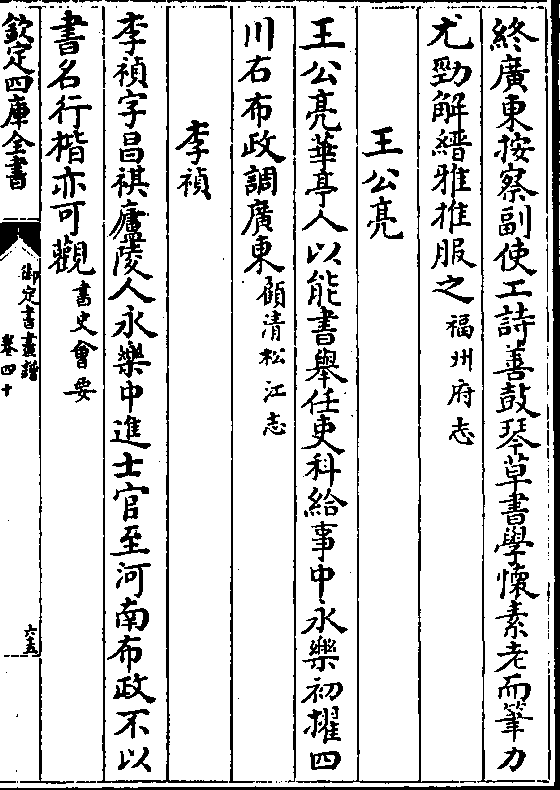 終廣東按察副使工詩善鼓琴草書學懷素老而筆力
尤勁解縉雅推服之福州府志
王公亮
王公亮華亭人以能書舉任吏科給事中永樂初擢四
川右布政調廣東顧清松江志
李禎
李禎字昌祺廬陵人永樂中進士官至河南布政不以
書名行楷亦可觀書史會要
欽定四庫全書
御定書畫譜
卷四十
六五